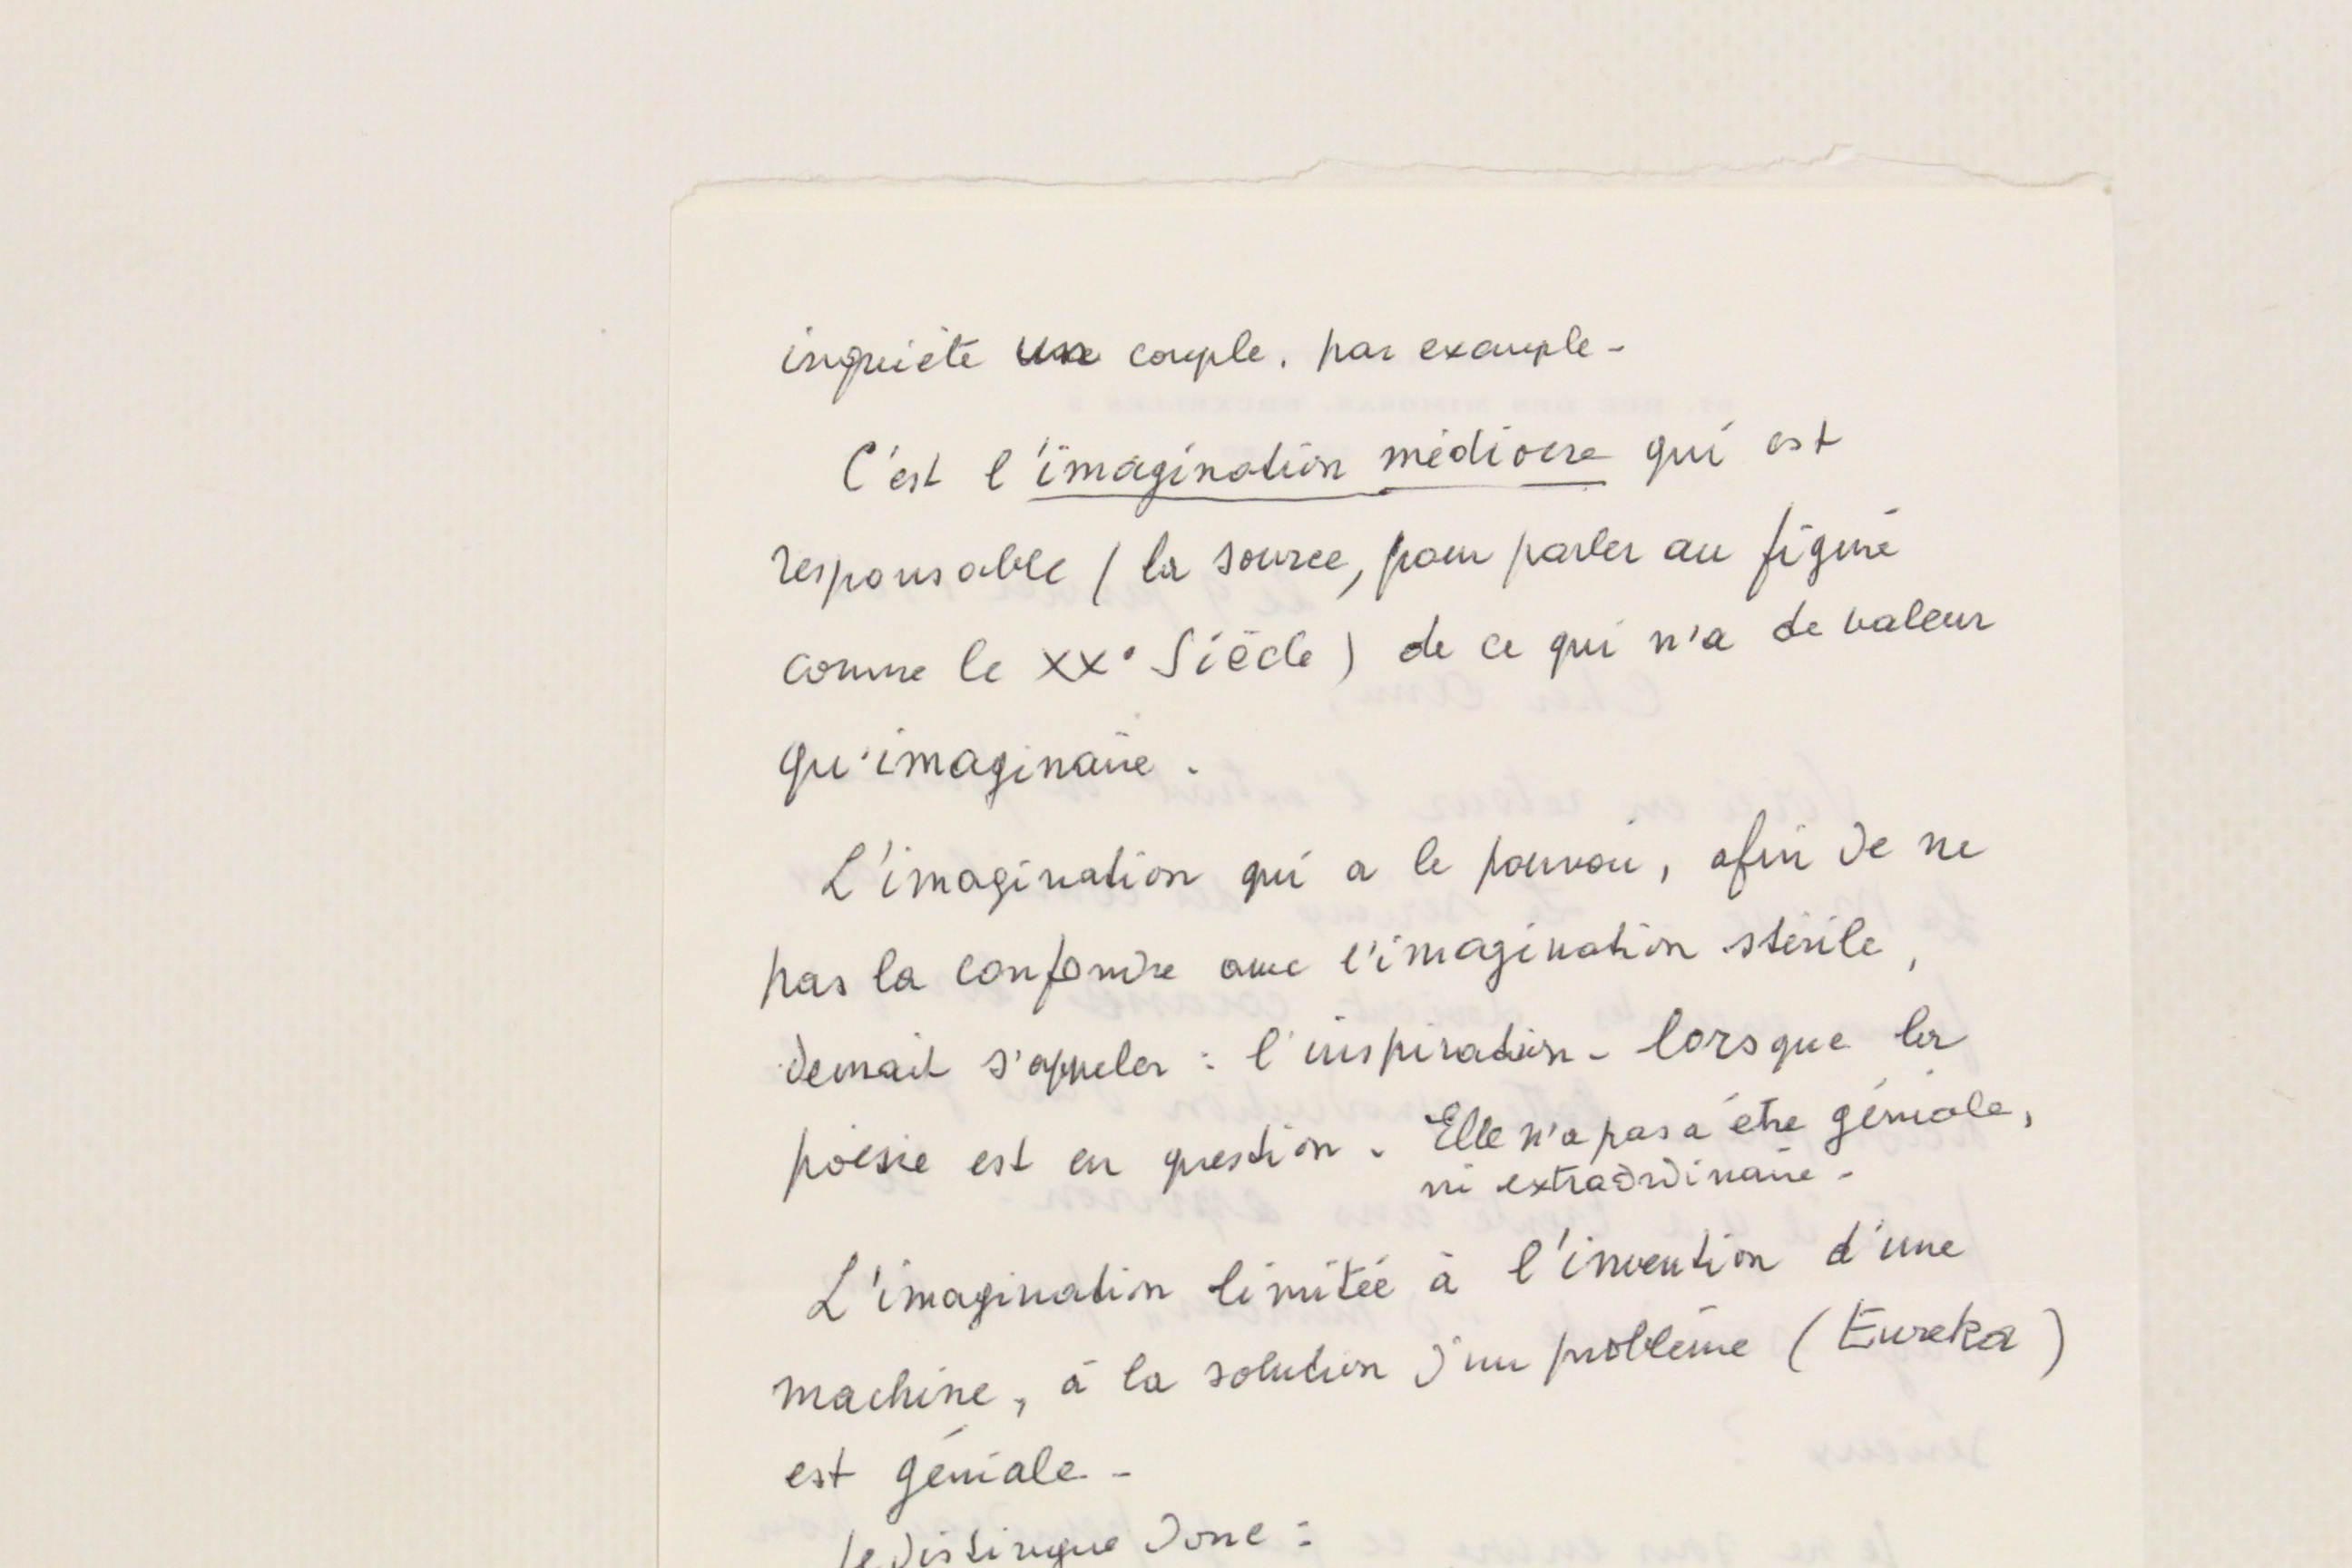 inquiète un couple, par exemple -
C'est l'imagination médiocre qui est
responsable (la source, pour parler au figuré
comme le XX° Siècle) de ce qui n'a de valeur
qu'imaginaire.
L'imagination qui a le pouvoir, afin de ne
pas la confondre avec l'imagination stérile,
devrait s'appeler : l'inspiration - lorsque la
poésie est en question. Elle n'a pas à être géniale,
ni extraordinaire -
L'imagination limitée à l'invention d'une
machine, à la solution d'un problème (Eureka)
est géniale -
Je distingue donc :